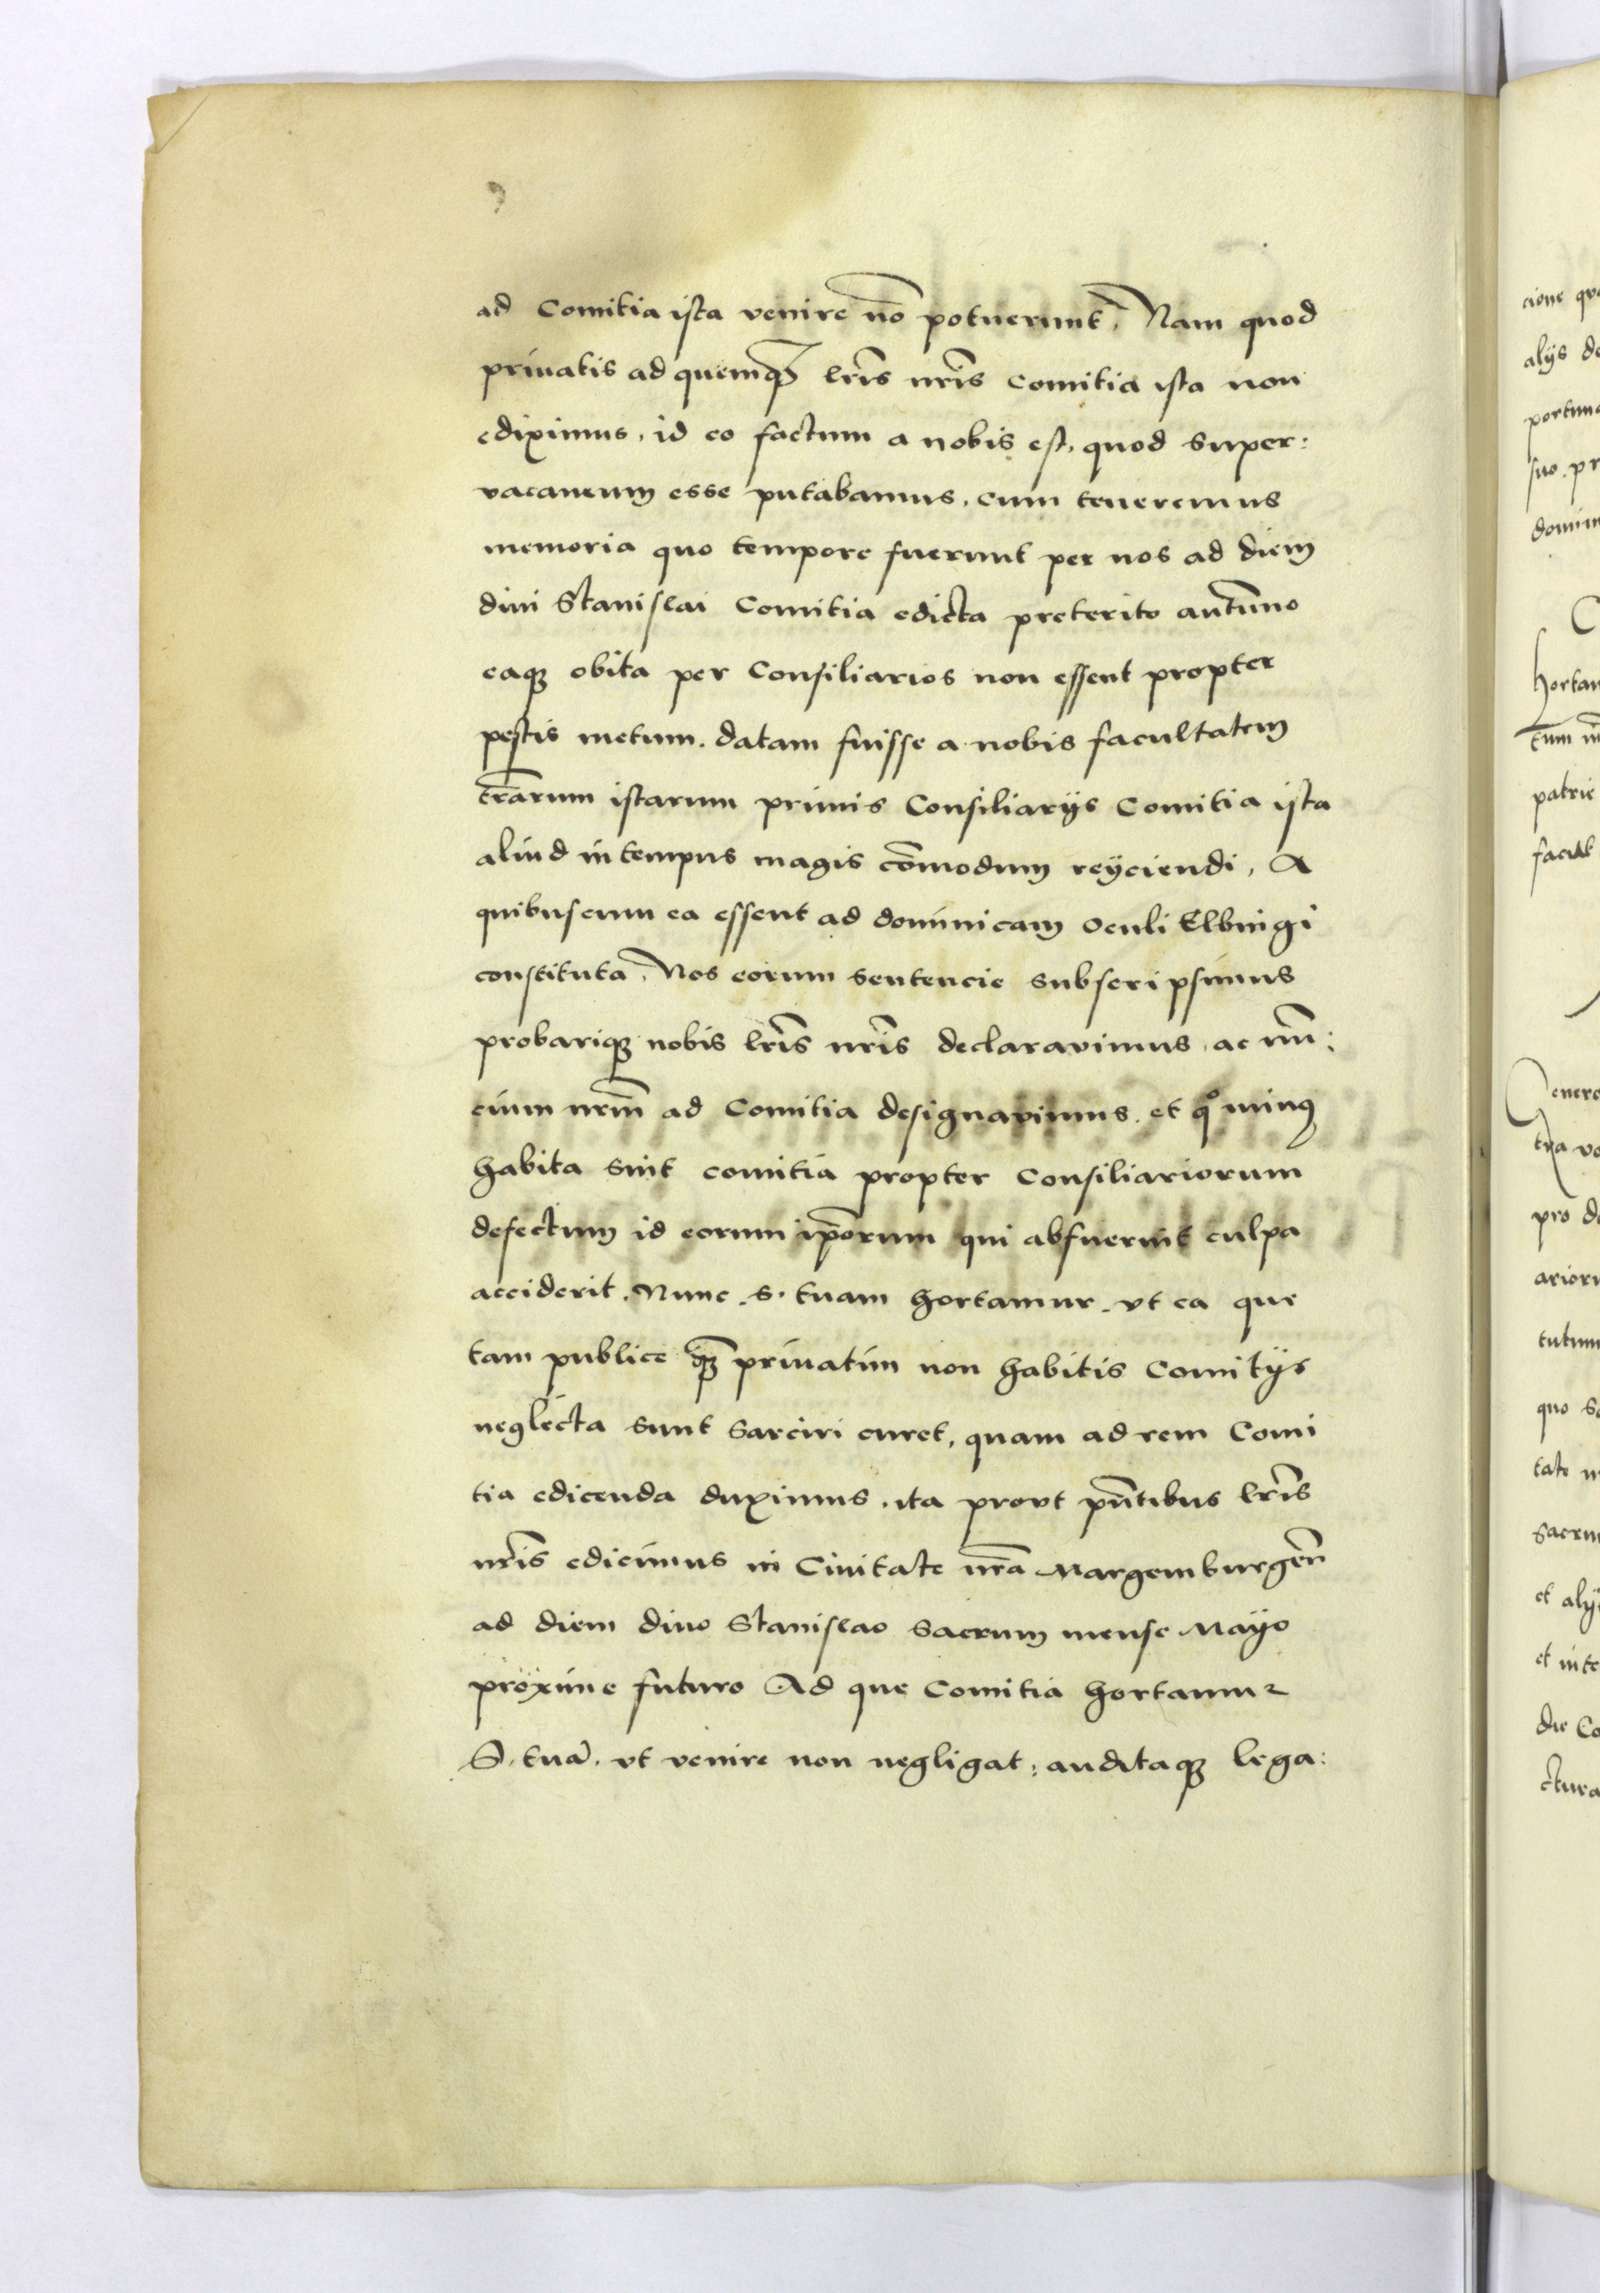 ad Comitia ista venire nō potuerunt, Nam quod
priuatis ad quemq̄ȝ lr̄is nr̄is comitia ista non
ediximus, id eo factum a nobis est, quod super:
vacaneum esse putabamus, cum teneremus
memoria quo tempore fuerunt per nos ad diem
diui Stanislai Comitia edicta preterito autūno
eaqȝ obita per Consiliarios non essent propter
pestis metum, datam fuisse a nobis facultatem
tr̄arum istarum primis Consiliarijs Comitia ista
aliud in tempus magis cōmodum reijciendi, A
quibuscum ea essent ad dominicam oculi Elbingi
constituta, Nos eorum sentencie subscripsimus
probariqȝ nobis lr̄is nr̄is declarauimus, ac nū:
cium nr̄m ad Comitia designauimus. et qͦ minꝰ
habita sint comitia propter Consiliariorum
defectum id eorum ip̄orum qui abfuerint culpa
acciderit. Nunc .S. tuam hortamur, vt ea que
tam publice q̄ȝ priuatim non habitis Comitijs
neglecta sunt sarciri curet, quam ad rem Comi
tia edicenda duximus, ita provt pn̄tibus lr̄is
nr̄is edicimus in Ciuitate nr̄a Margemburgeñ
ad diem diuo Stanislao sacrum mense Mayo
proxime futuro Ad que Comitia hortamur
S. tuā. vt venire non negligat: auditaqȝ lega:
cione
alijs
hortam
patrie
tutum
quo
et alij
et inte